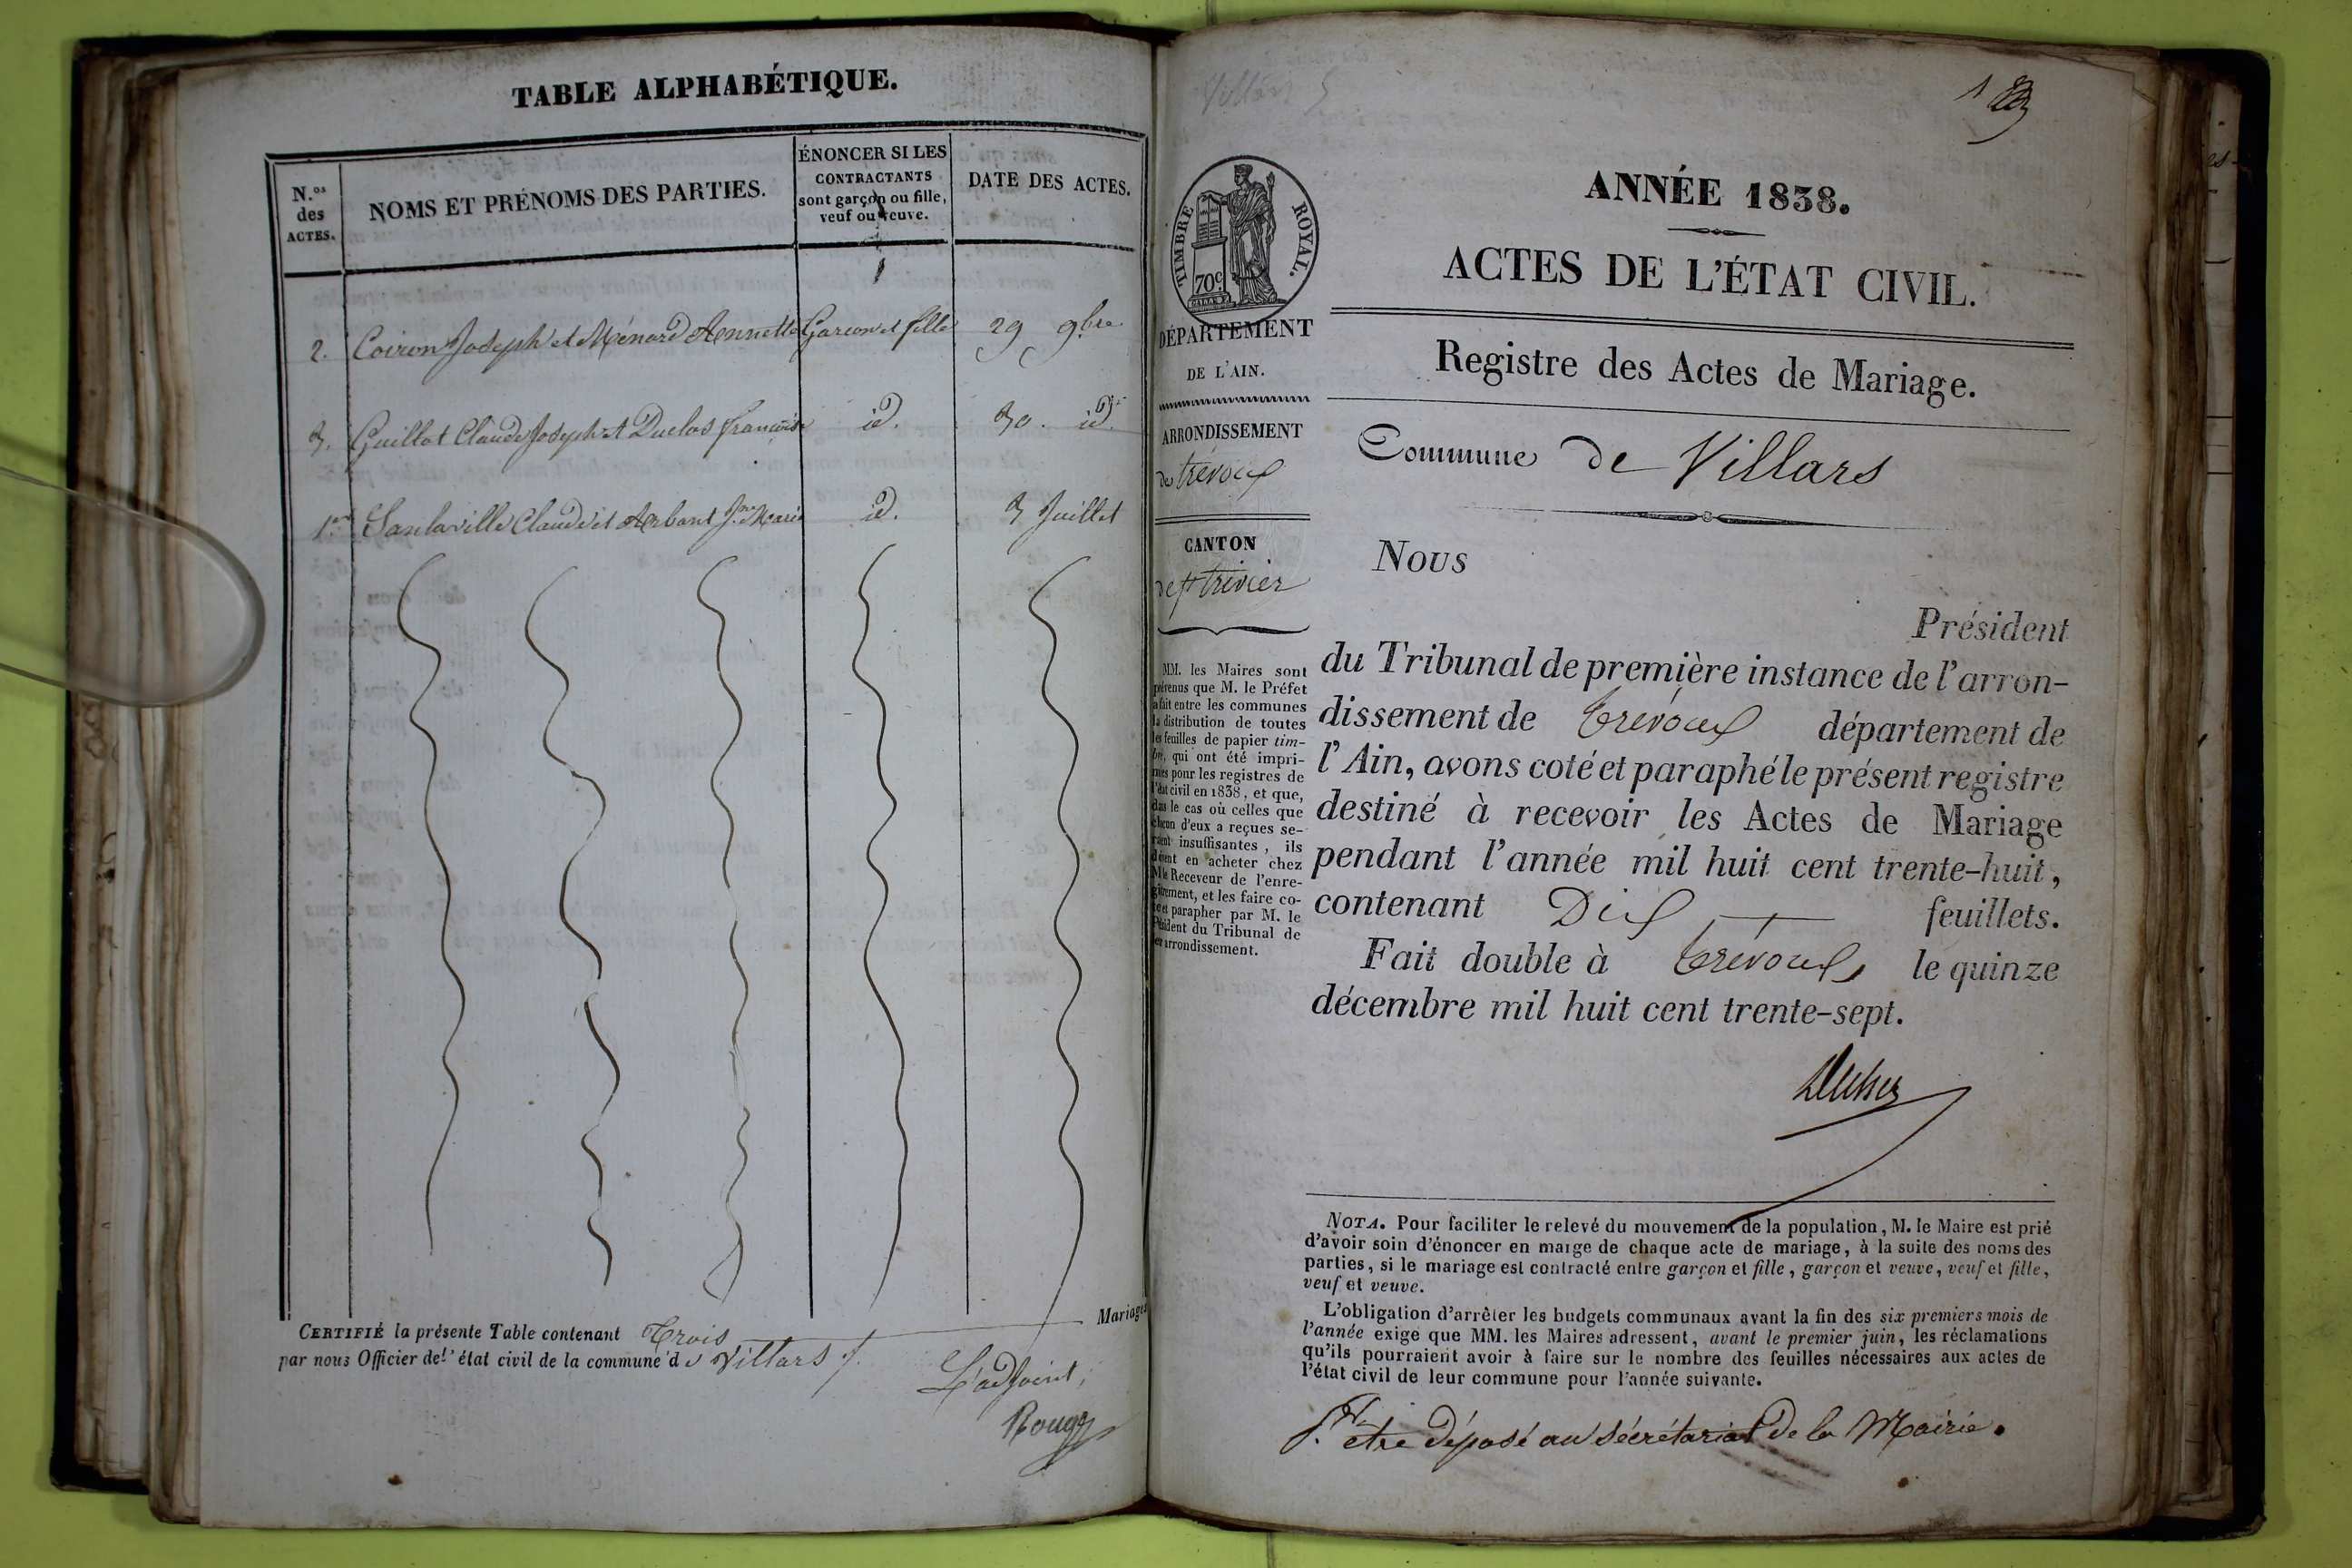 TABLE ALPHABÉTIQUE.
N.os des ACTES.
NOMS ET PRÉNOMS DES PARTIES.
ÉNONCER SI LES
CONTRACTANTS
sont garçon ou fille,
veuf ou veuve.
DATE DES ACTES.
2. Coiron Joseph et Ménard Annette Garcon et fille 29 9bre.
3. Guillot Claude Joseph et Duclos françoise id. 30. id.
1er Sanlaville Claude et Arbant Jne Marie id. 3 Juillet
CERTIFIÉ la présente Table contenant Trois Mariages
par nous Officier del' état civil de la commune de Villars
L'adjoint,
Rouge
TIMBRE ROYAL.
70c
DÉPARTEMENT
DE L'AIN.
ARRONDISSEMENT
de trévoux
CANTON
de St trivier
MM. les Maires sont
prévenus que M. le Préfet
a fait entre les communes
la distribution de toutes
les feuilles de papier tim-
bré, qui ont été impri-
mées pour les registres de
l'état civil en 1838, et que,
dans le cas où celles que
chacun d'eux a reçues se-
raient insuffisantes, ils
doivent en acheter chez
M. le Receveur de l'enre-
gistrement, et les faire co-
ter et parapher par M. le
Président du Tribunal de
leur arrondissement.
1
ANNÉE 1838.
ACTES DE L'ÉTAT CIVIL.
Registre des Actes de Mariage.
Commune de Villars
Nous
Président
du Tribunal de première instance de l'arron-
dissement de trévoux département de
l'Ain, avons coté et paraphé le présent registre
destiné à recevoir les Actes de Mariage
pendant l'année mil huit cent trente-huit,
contenant Dix feuillets.
Fait double à trévoux, le quinze
décembre mil huit cent trente-sept.
NOTA. Pour faciliter le relevé du mouvement de la population, M. le Maire est prié
d'avoir soin d'énoncer en marge de chaque acte de mariage, à la suite des noms des
parties, si le mariage est contracté entre garçon et fille, garçon et veuve, veuf et fille,
veuf et veuve.
L'obligation d'arrêter les budgets communaux avant la fin des six premiers mois de
l'année exige que MM. les Maires adressent, avant le premier juin, les réclamations
qu'ils pourraient avoir à faire sur le nombre des feuilles nécessaires aux actes de
l'état civil de leur commune pour l'année suivante.
Pr. être déposé au sécrétariat de la Mairie.